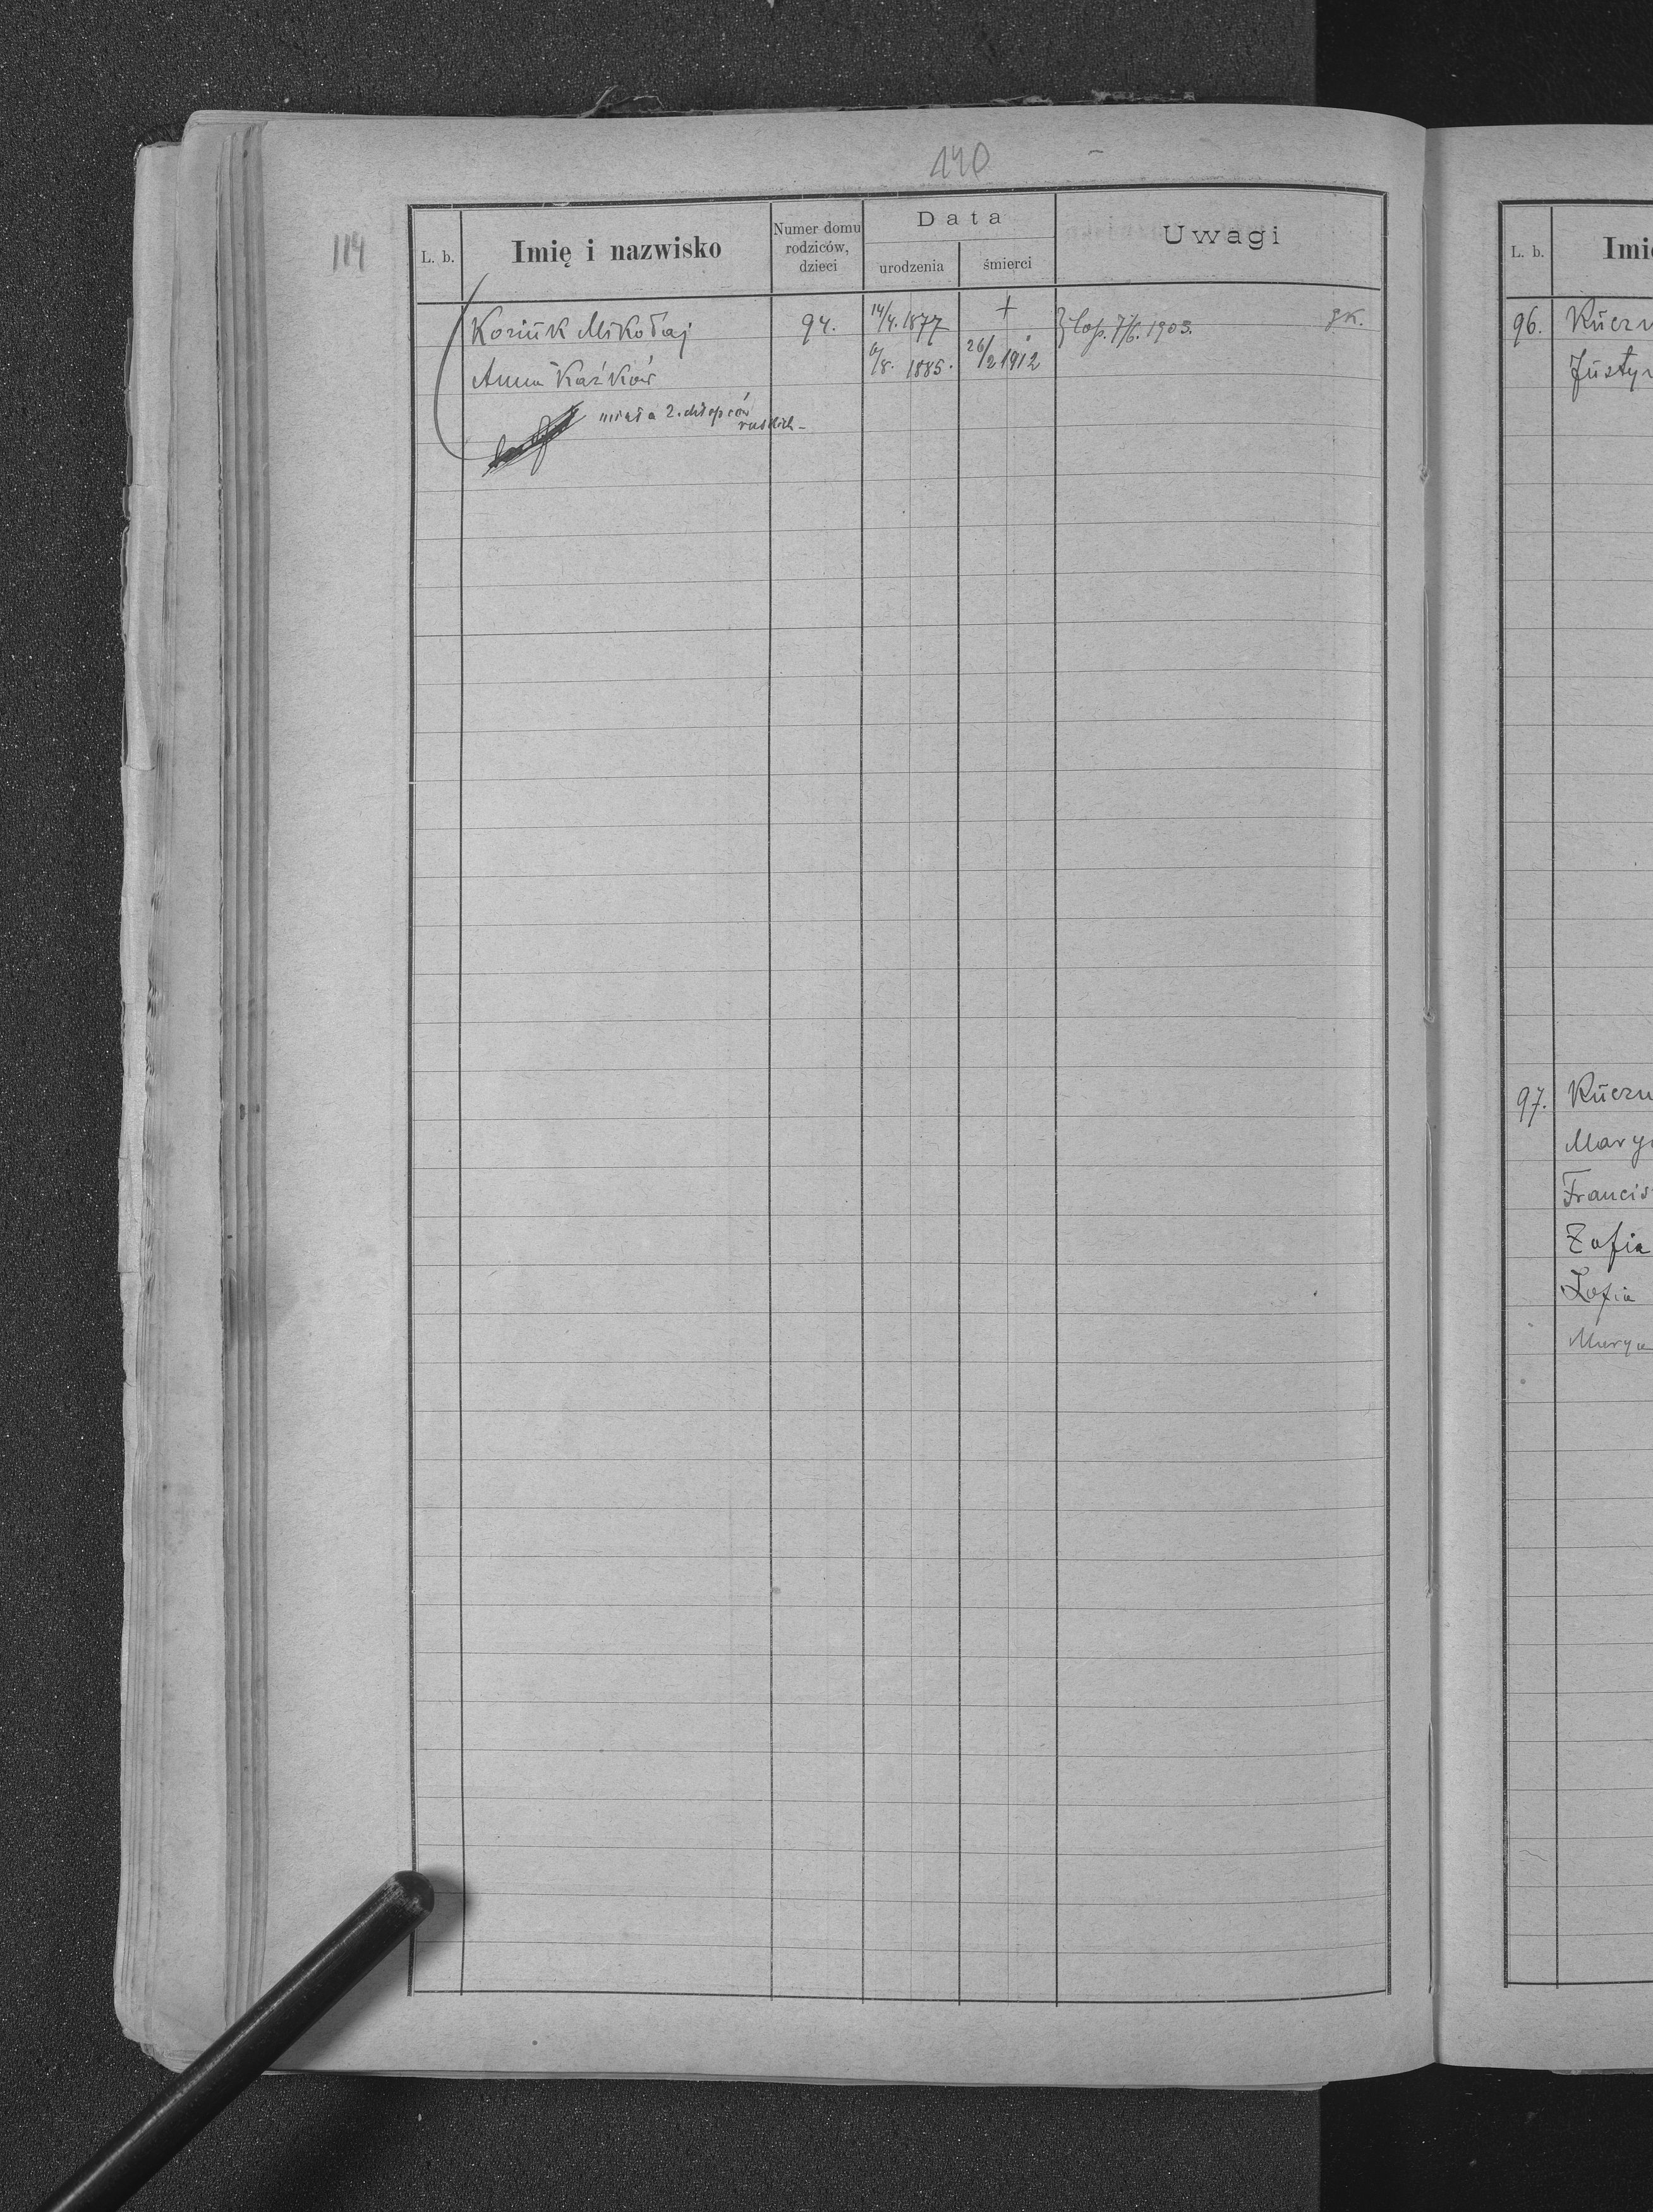 140
114
L. b.
Imię i nazwisko
Numer domu
rodziców,
dzieci
Data
urodzenia
śmierci
Uwagi
Koziuk Mikołaj 94. 14/4. 1877 + cop. 7/6. 1903. gk.
Anna Kaźków 6/8. 1885. 26/2 1912
miała 2. chłopców
ruskich -
L. b.
Imi
96. Kuczn
Justyn
97. Kuczn
Mary
Francis
Zofia
Zofia
Marya